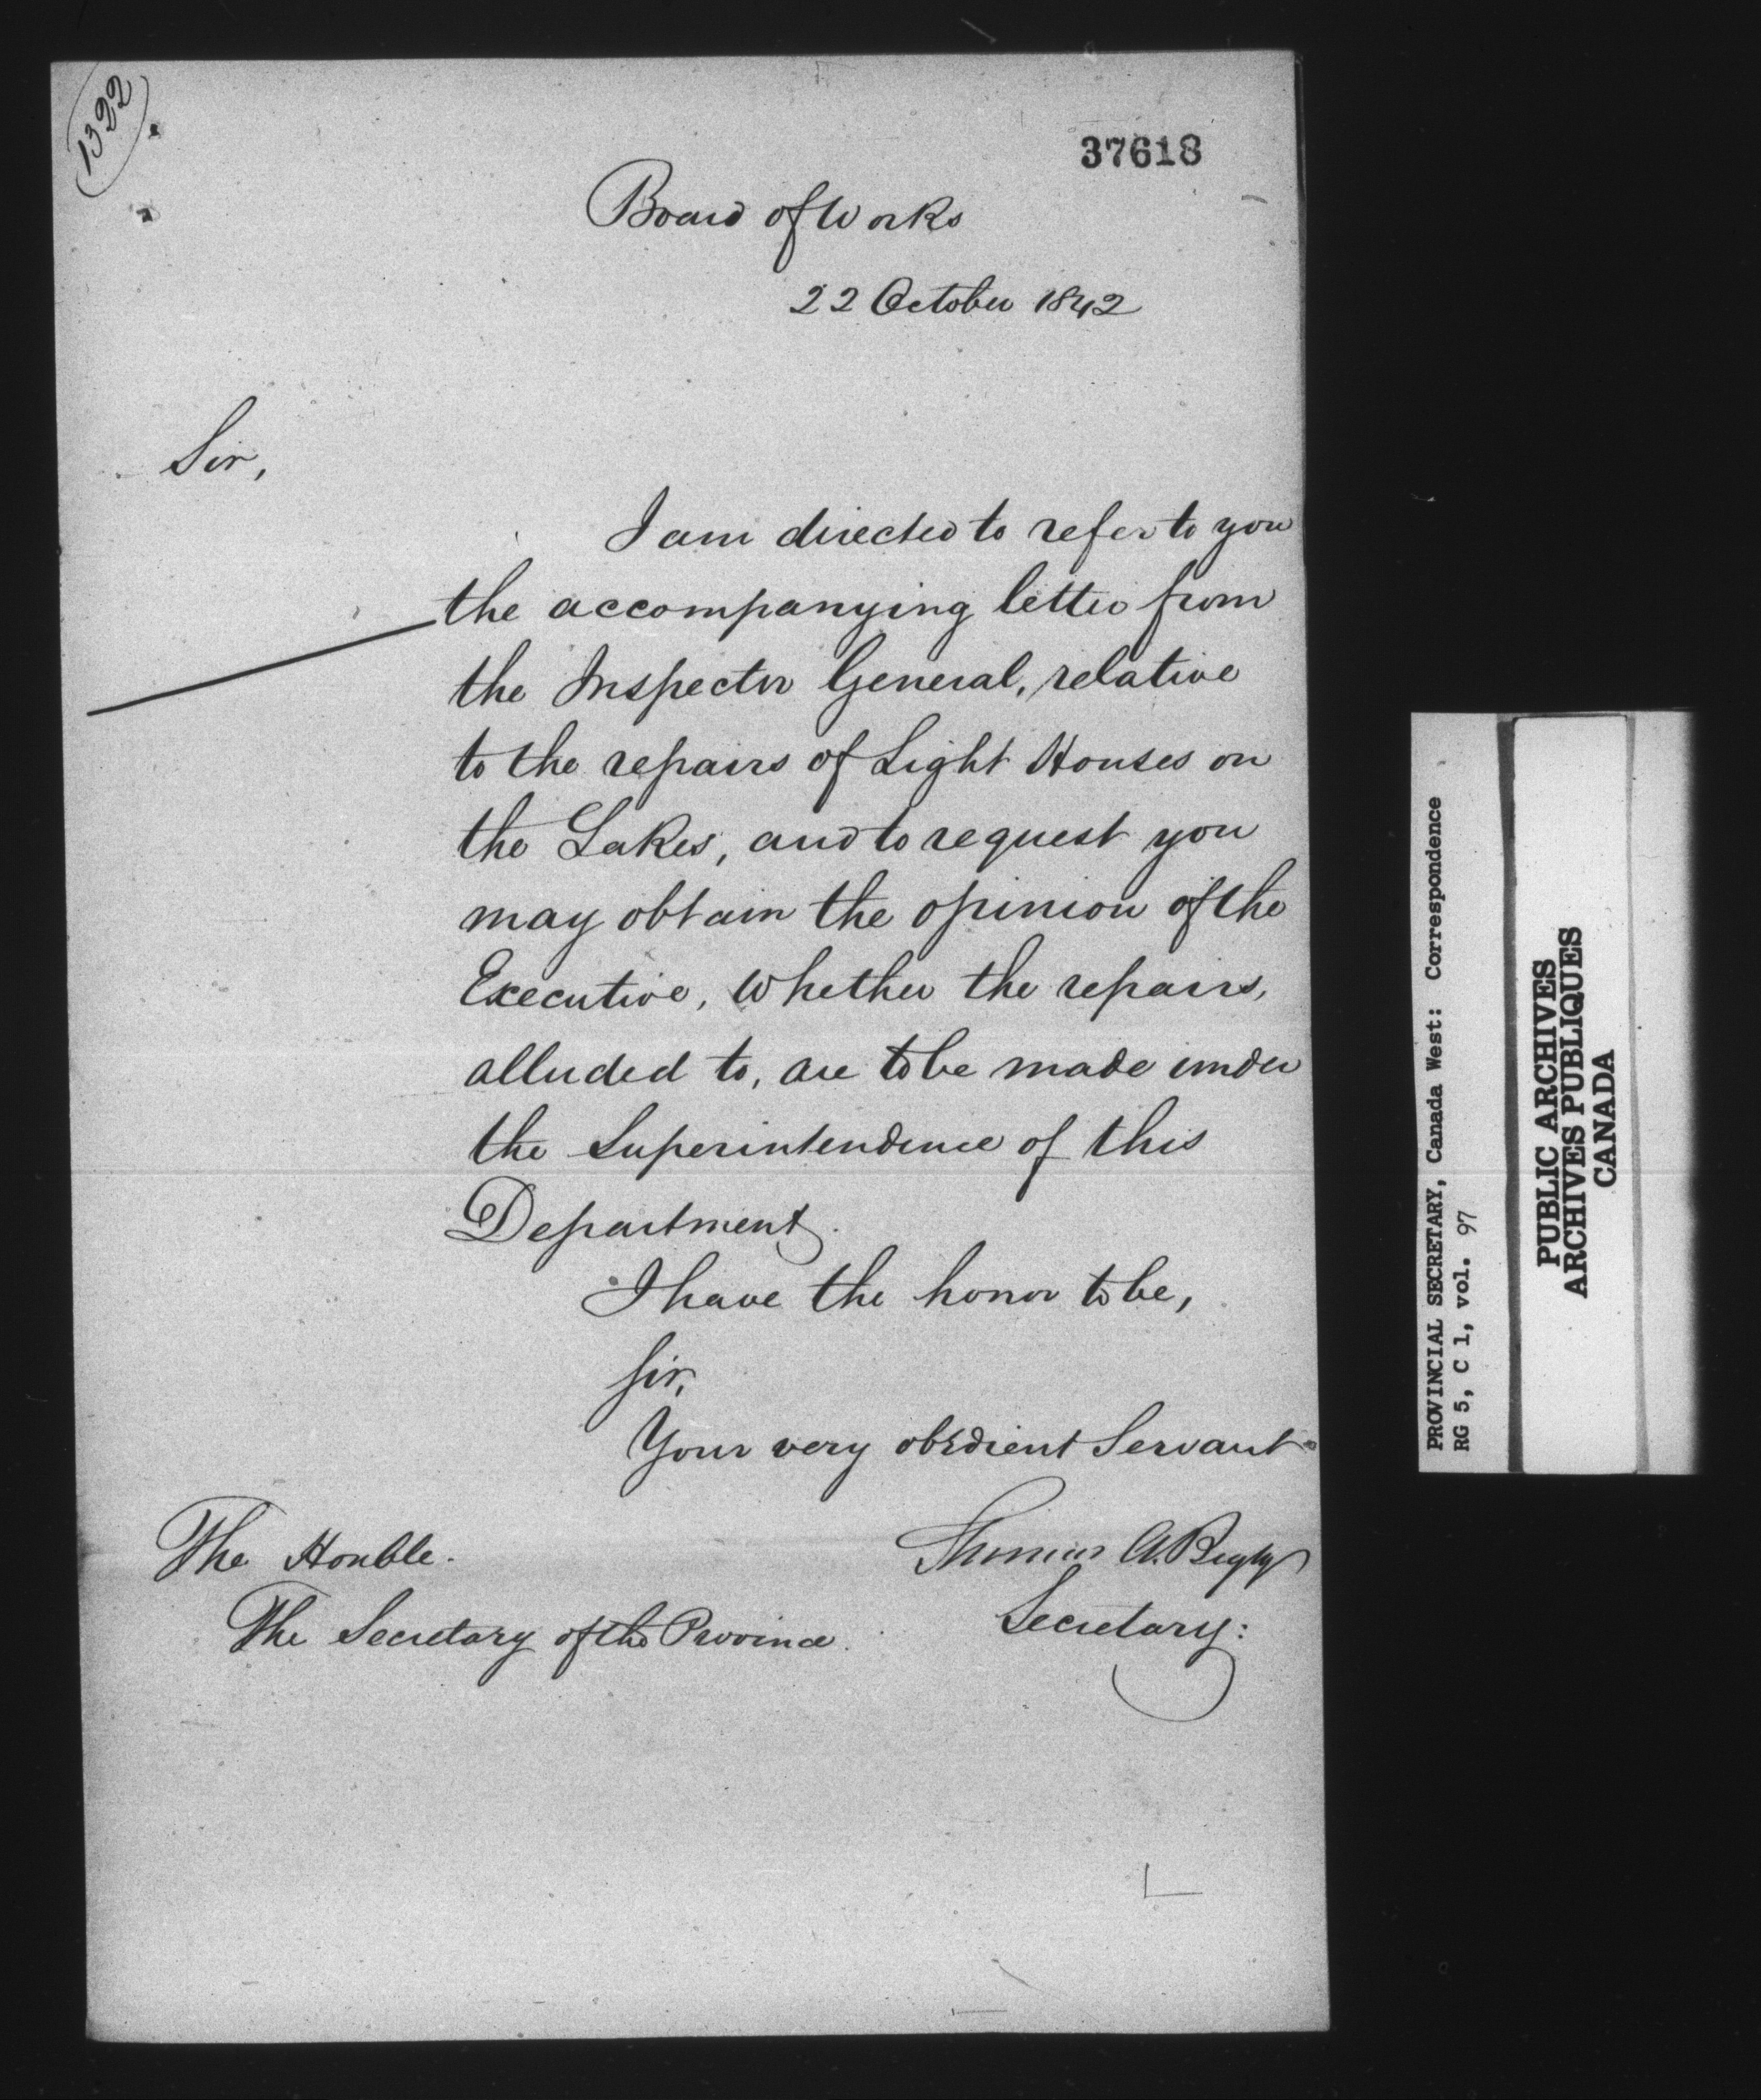 1322
37618
Board of Works
22 October 1842
Sir,
I am directed to refer to you
the accompanying letter from
the Inspector General, relative
to the repairs of Light Houses on
the Lakes, and to request you
may obtain the opinion of the
Executive, Whether the repairs,
alluded to, are to be made under
the Superintendence of this
Department.
I have the honor to be,
Sir,
Your very obedient Servant
Thomas A. Begly
Secretary:
The Honble.
The Secretary of the Province.
PROVINCIAL SECRETARY, Canada West: Correspondence
RG 5, C 1, vol. 97
PUBLIC ARCHIVES
ARCHIVES PUBLIQUES
CANADA